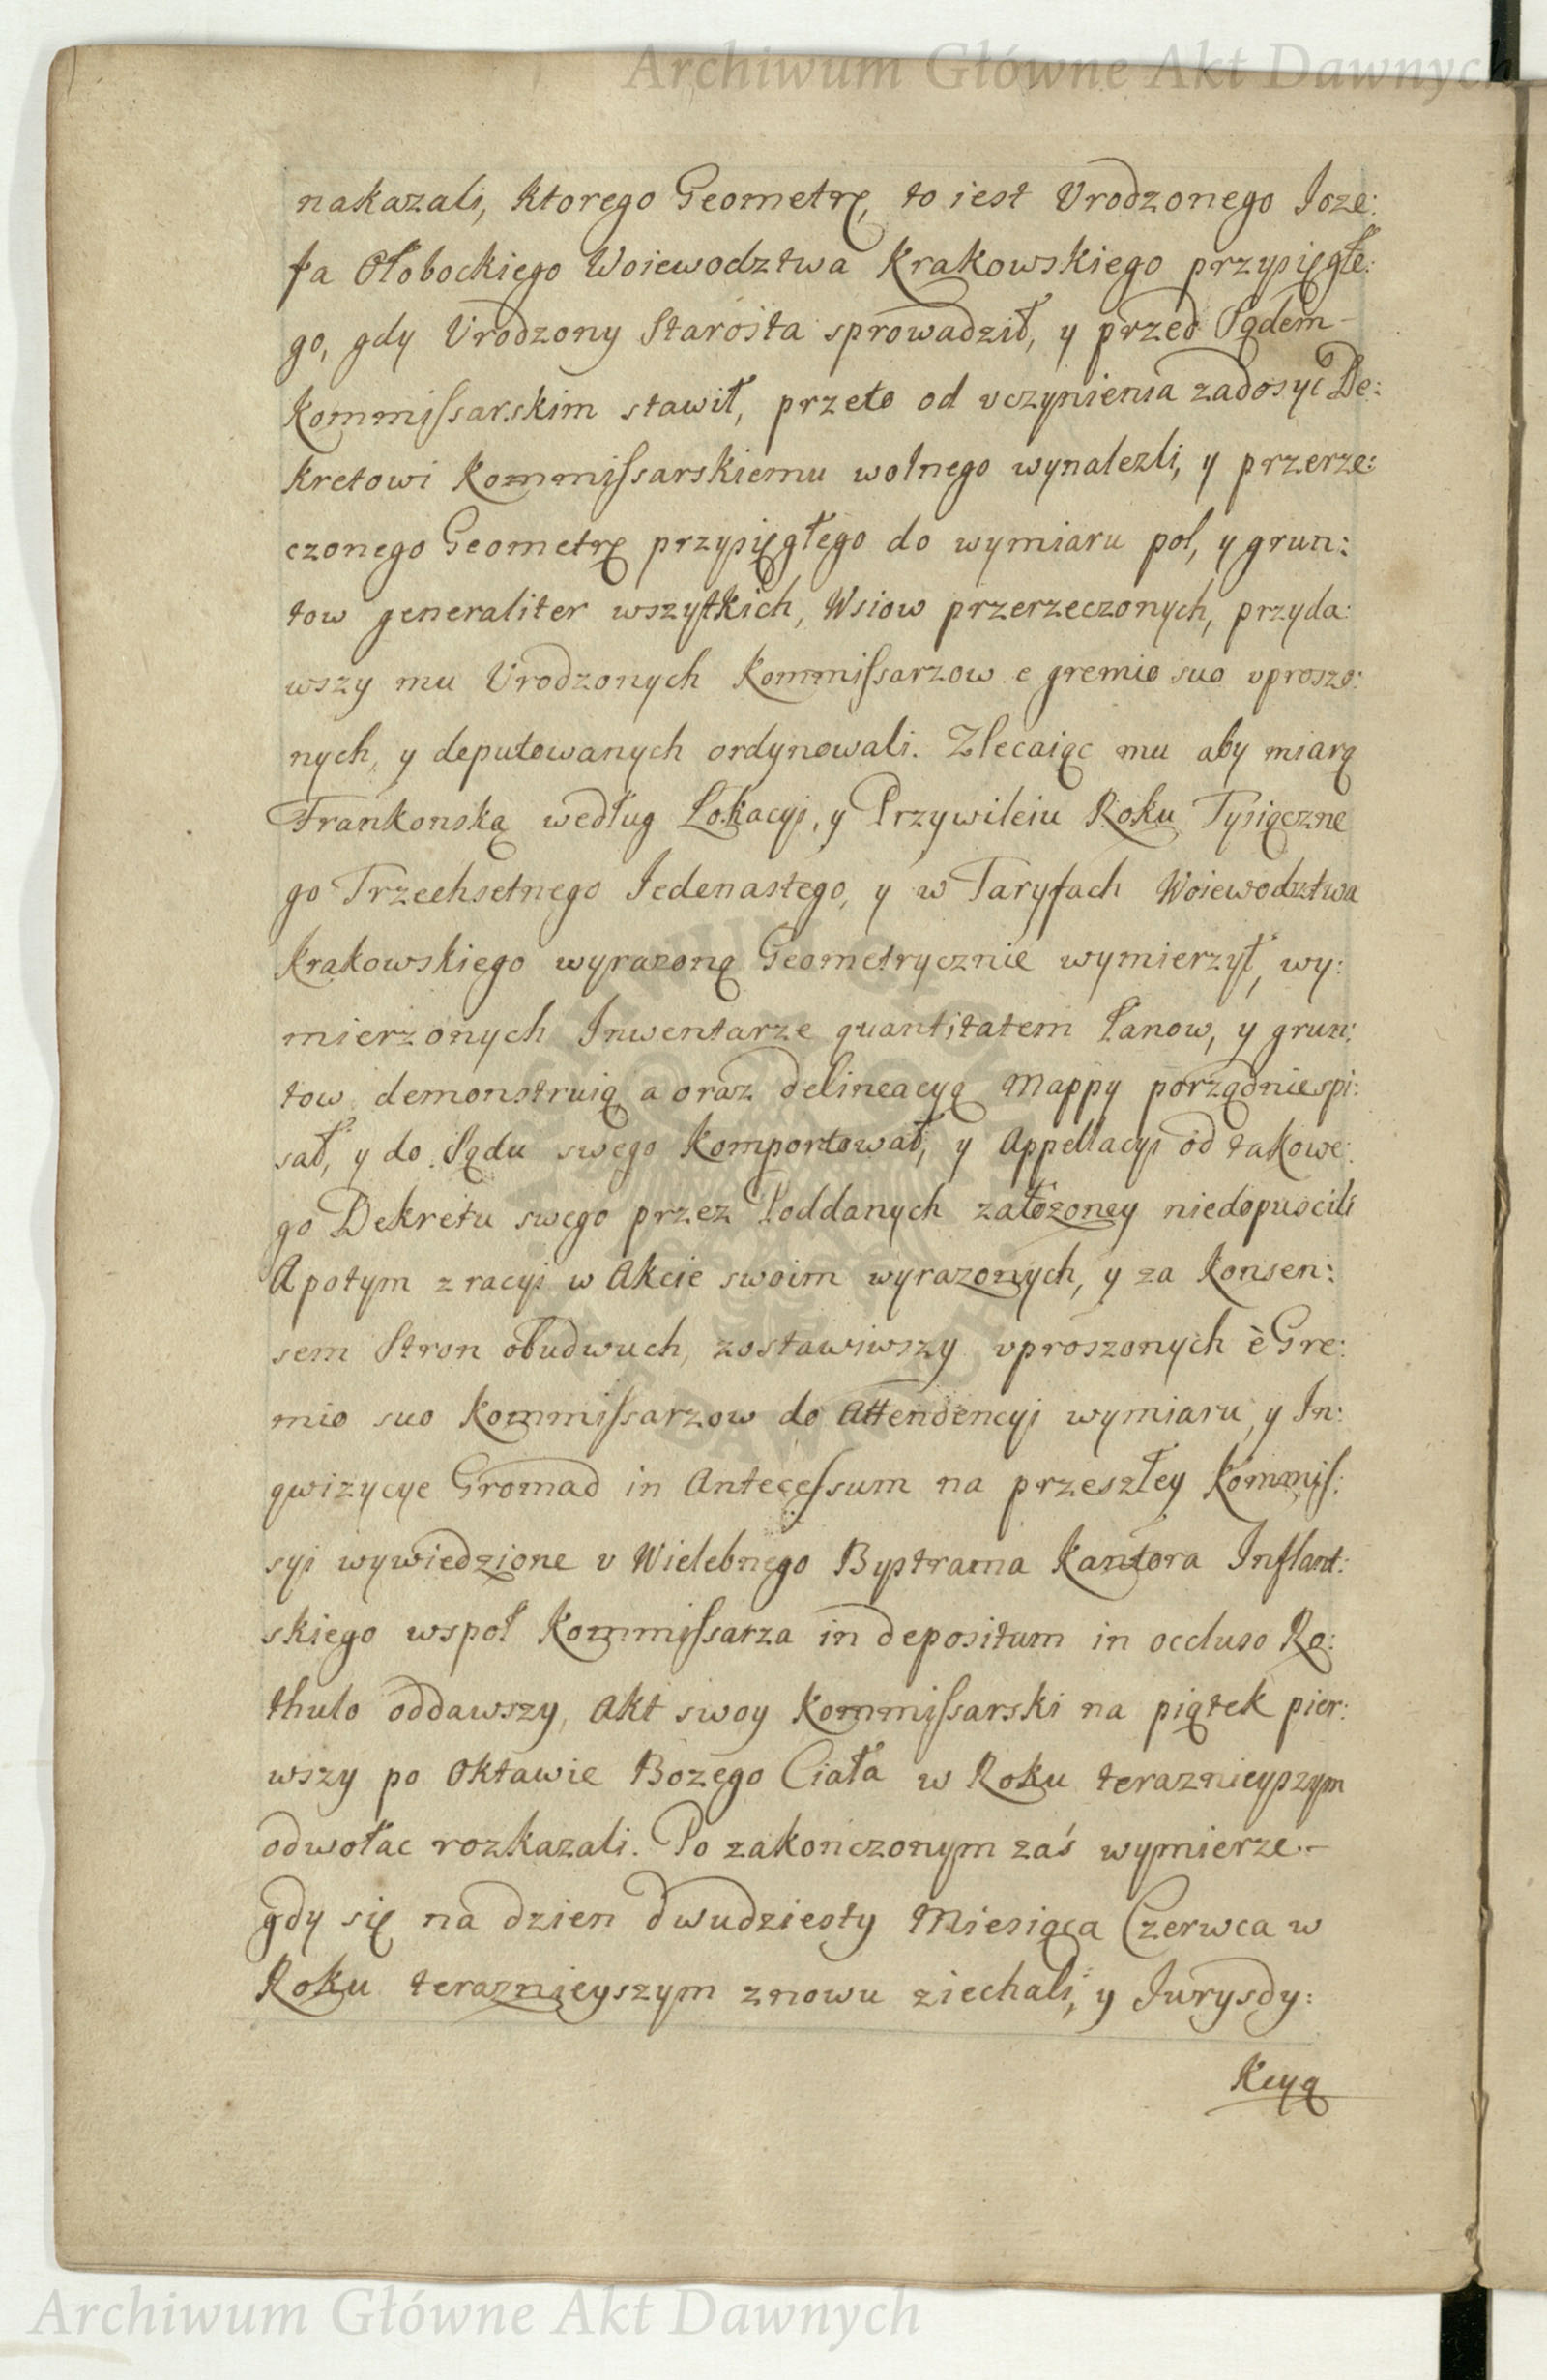 Archiwum Główne Akt Dawnych
nakazali, ktorego Geometrę, to iest Vrodzonego Joze:
fa Ołobockiego Woiewodztwa Krakowskiego przysięgłe:
go, gdy Vrodzony Starosta sprowadził, y przed Sądem
Kommissarskim stawił, przeto od vczynienia zadosyć De:
kretowi Kommissarskiemu wolnego wynalezli, y przerze:
czonego Geometrę przysięgłego do wymiaru pol, y grun:
tow generaliter wszystkich, Wsiow przerzeczonych, przyda:
wszy mu Vrodzonych Kommissarzow e gremio suo vproszo:
nych, y deputowanych ordynowali. Zlecaiąc mu aby miarą
Frankonską według Lokacyi, y Przywileiu Roku Tysiączne
go Trzechsetnego Jedenastego, y w Taryfach Woiewodztwa
Krakowskiego wyrazoną Geometrycznie wymierzył, wy:
mierzonych Inwentarze quantitatem Łanow, y grun:
tow demonstruią a oraz delineacyą Mappy porządnie spi:
sał, y do Sądu swego komportował, y Appellacyi od takowe:
go Dekretu swego przez Poddanych założoney niedopuscili
A potym z racyi w Akcie swoim wyrazonych, y za Konsen:
sem Stron obudwuch, zostawiwszy vproszonych è Gre:
mio suo Kommissarzow do Attendencyi wymiaru, y In:
qwizycye Gromad in Antecessum na przeszłey Kommis:
syi wywiedzione v Wielebnego Bystrama Kantora Inflant:
skiego wspoł Kommissarza in depositum in occluso Ro:
thulo oddawszy, Akt swoy Kommissarski na piątek pier:
wszy po Oktawie Bozego Ciała w Roku teraznieyszym
odwołac rozkazali. Po zakończonym zaś wymierze
gdy się na dzien dwudziesty Miesiąca Czerwca w
Roku teraznieyszym znowu ziechali, y Jurysdy:
kcyą
Archiwum Główne Akt Dawnych